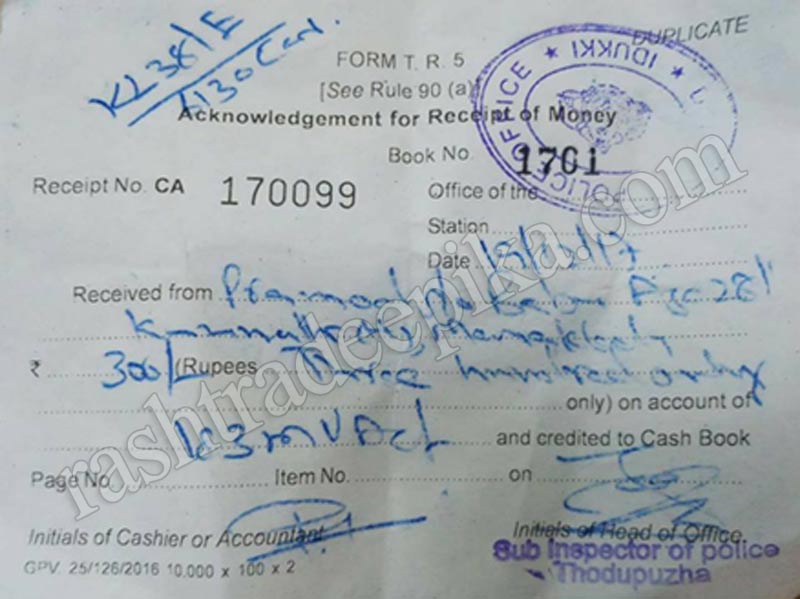 KL38/E
1130 Car.
DUPLICATE
FORM T. R. 5
[See Rule 90 (a)]
Acknowledgement for Receipt of Money
POLICE OFFICE ★ IDUKKI ★
Book No. 1701
Receipt No. CA 170099
Office of the
Station
Date /17
Received from Age 28
₹ 300/- (Rupees Three hundred only
only) on account of
MV Act and credited to Cash Book
Page No. Item No. on
Initials of Cashier or Accountant Initials of Head of Office.
Sub Inspector of police
Thodupuzha
GPV. 25/126/2016 10,000 x 100 x 2
rashtradeepika.com